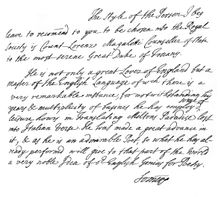 The Style of the Person I beg
leave to recommend to you, to be chosen into the Royal
Society is Count Lorenzo Magalotti Counsellor of State
to the most serene Great Duke of Tuscany.
He is not only a great Lover of England but a
master of the English Language of wch there is a
very remarkable instance, for notwithstanding his
years & multiplicity of business he has employed
leisure hours in translating Miltons Paradise lost
into Italian verse. He hath made a great advance in
it, & as he is an admirable Poet, so what he has already performed will give to that part of the world
a very noble Idea of ye English Genius for Poetry.